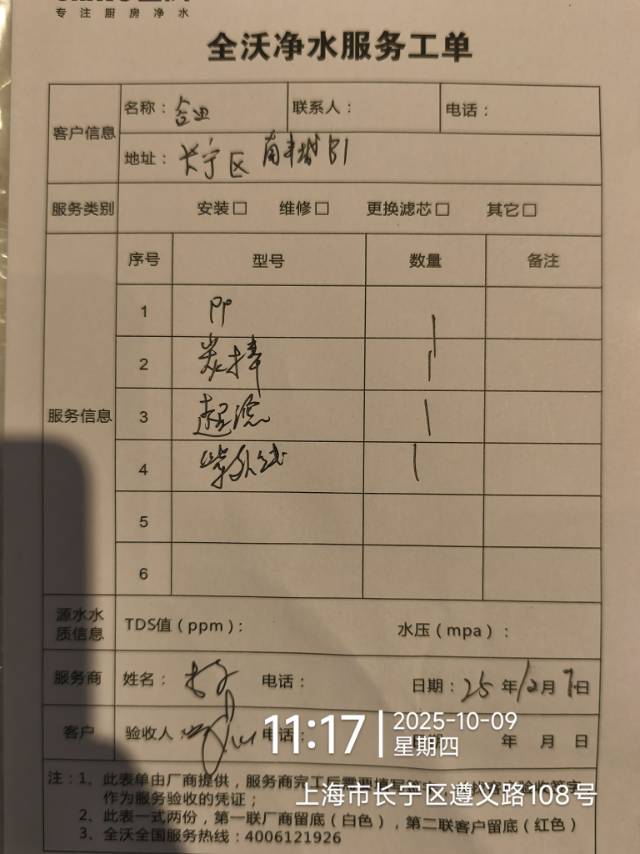 专注厨房净水
全沃净水服务工单
客户信息
名称：
联系人：
电话：
地址：长宁区 南丰城B1
服务类别
安装□ 维修□ 更换滤芯□ 其它□
服务信息
序号 型号 数量 备注
1 PP 1
2 炭棒 1
3 超滤 1
4 紫外线 1
5
6
源水水质信息
TDS值（ppm）： 水压（mpa）：
服务商
姓名： 电话： 日期：25年12月7日
客户
验收人： 电话： 年 月 日
11:17
2025-10-09
星期四
注：1、此表单由厂商提供，服务商完工后需要填写
作为服务验收的凭证；
上海市长宁区遵义路108号
2、此表一式两份，第一联厂商留底（白色），第二联客户留底（红色）
3、全沃全国服务热线：4006121926